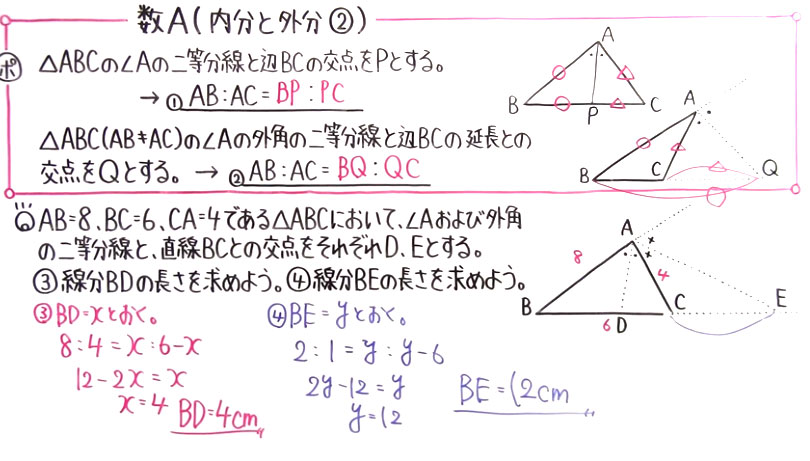 数A(内分と外分②)
ポ
△ABCの∠Aの二等分線と辺BCの交点をPとする。
→ ① AB:AC=BP:PC
△ABC(AB≠AC)の∠Aの外角の二等分線と辺BCの延長との
交点をQとする。 → ② AB:AC=BQ:QC
A
B
P
C
A
B
C
Q
Q AB=8、BC=6、CA=4である△ABCにおいて、∠Aおよび外角
の二等分線と、直線BCとの交点をそれぞれD、Eとする。
③線分BDの長さを求めよう。④線分BEの長さを求めよう。
③BD=xとおく。
8:4=x:6-x
12-2x=x
x=4 BD=4cm
④BE=yとおく。
2:1=y:y-6
2y-12=y
y=12
BE=12cm
A
8
4
B
6 D
C
E